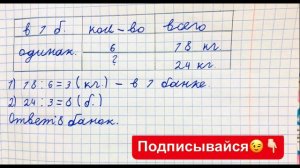 в 1 б. кол-во всего
одинак. 6 18 кг.
? 24 кг.
1) 18:6=3 (кг) – в 1 банке
2) 24:3=8 (б.)
Ответ: 8 банок.
Подписывайся😉👇